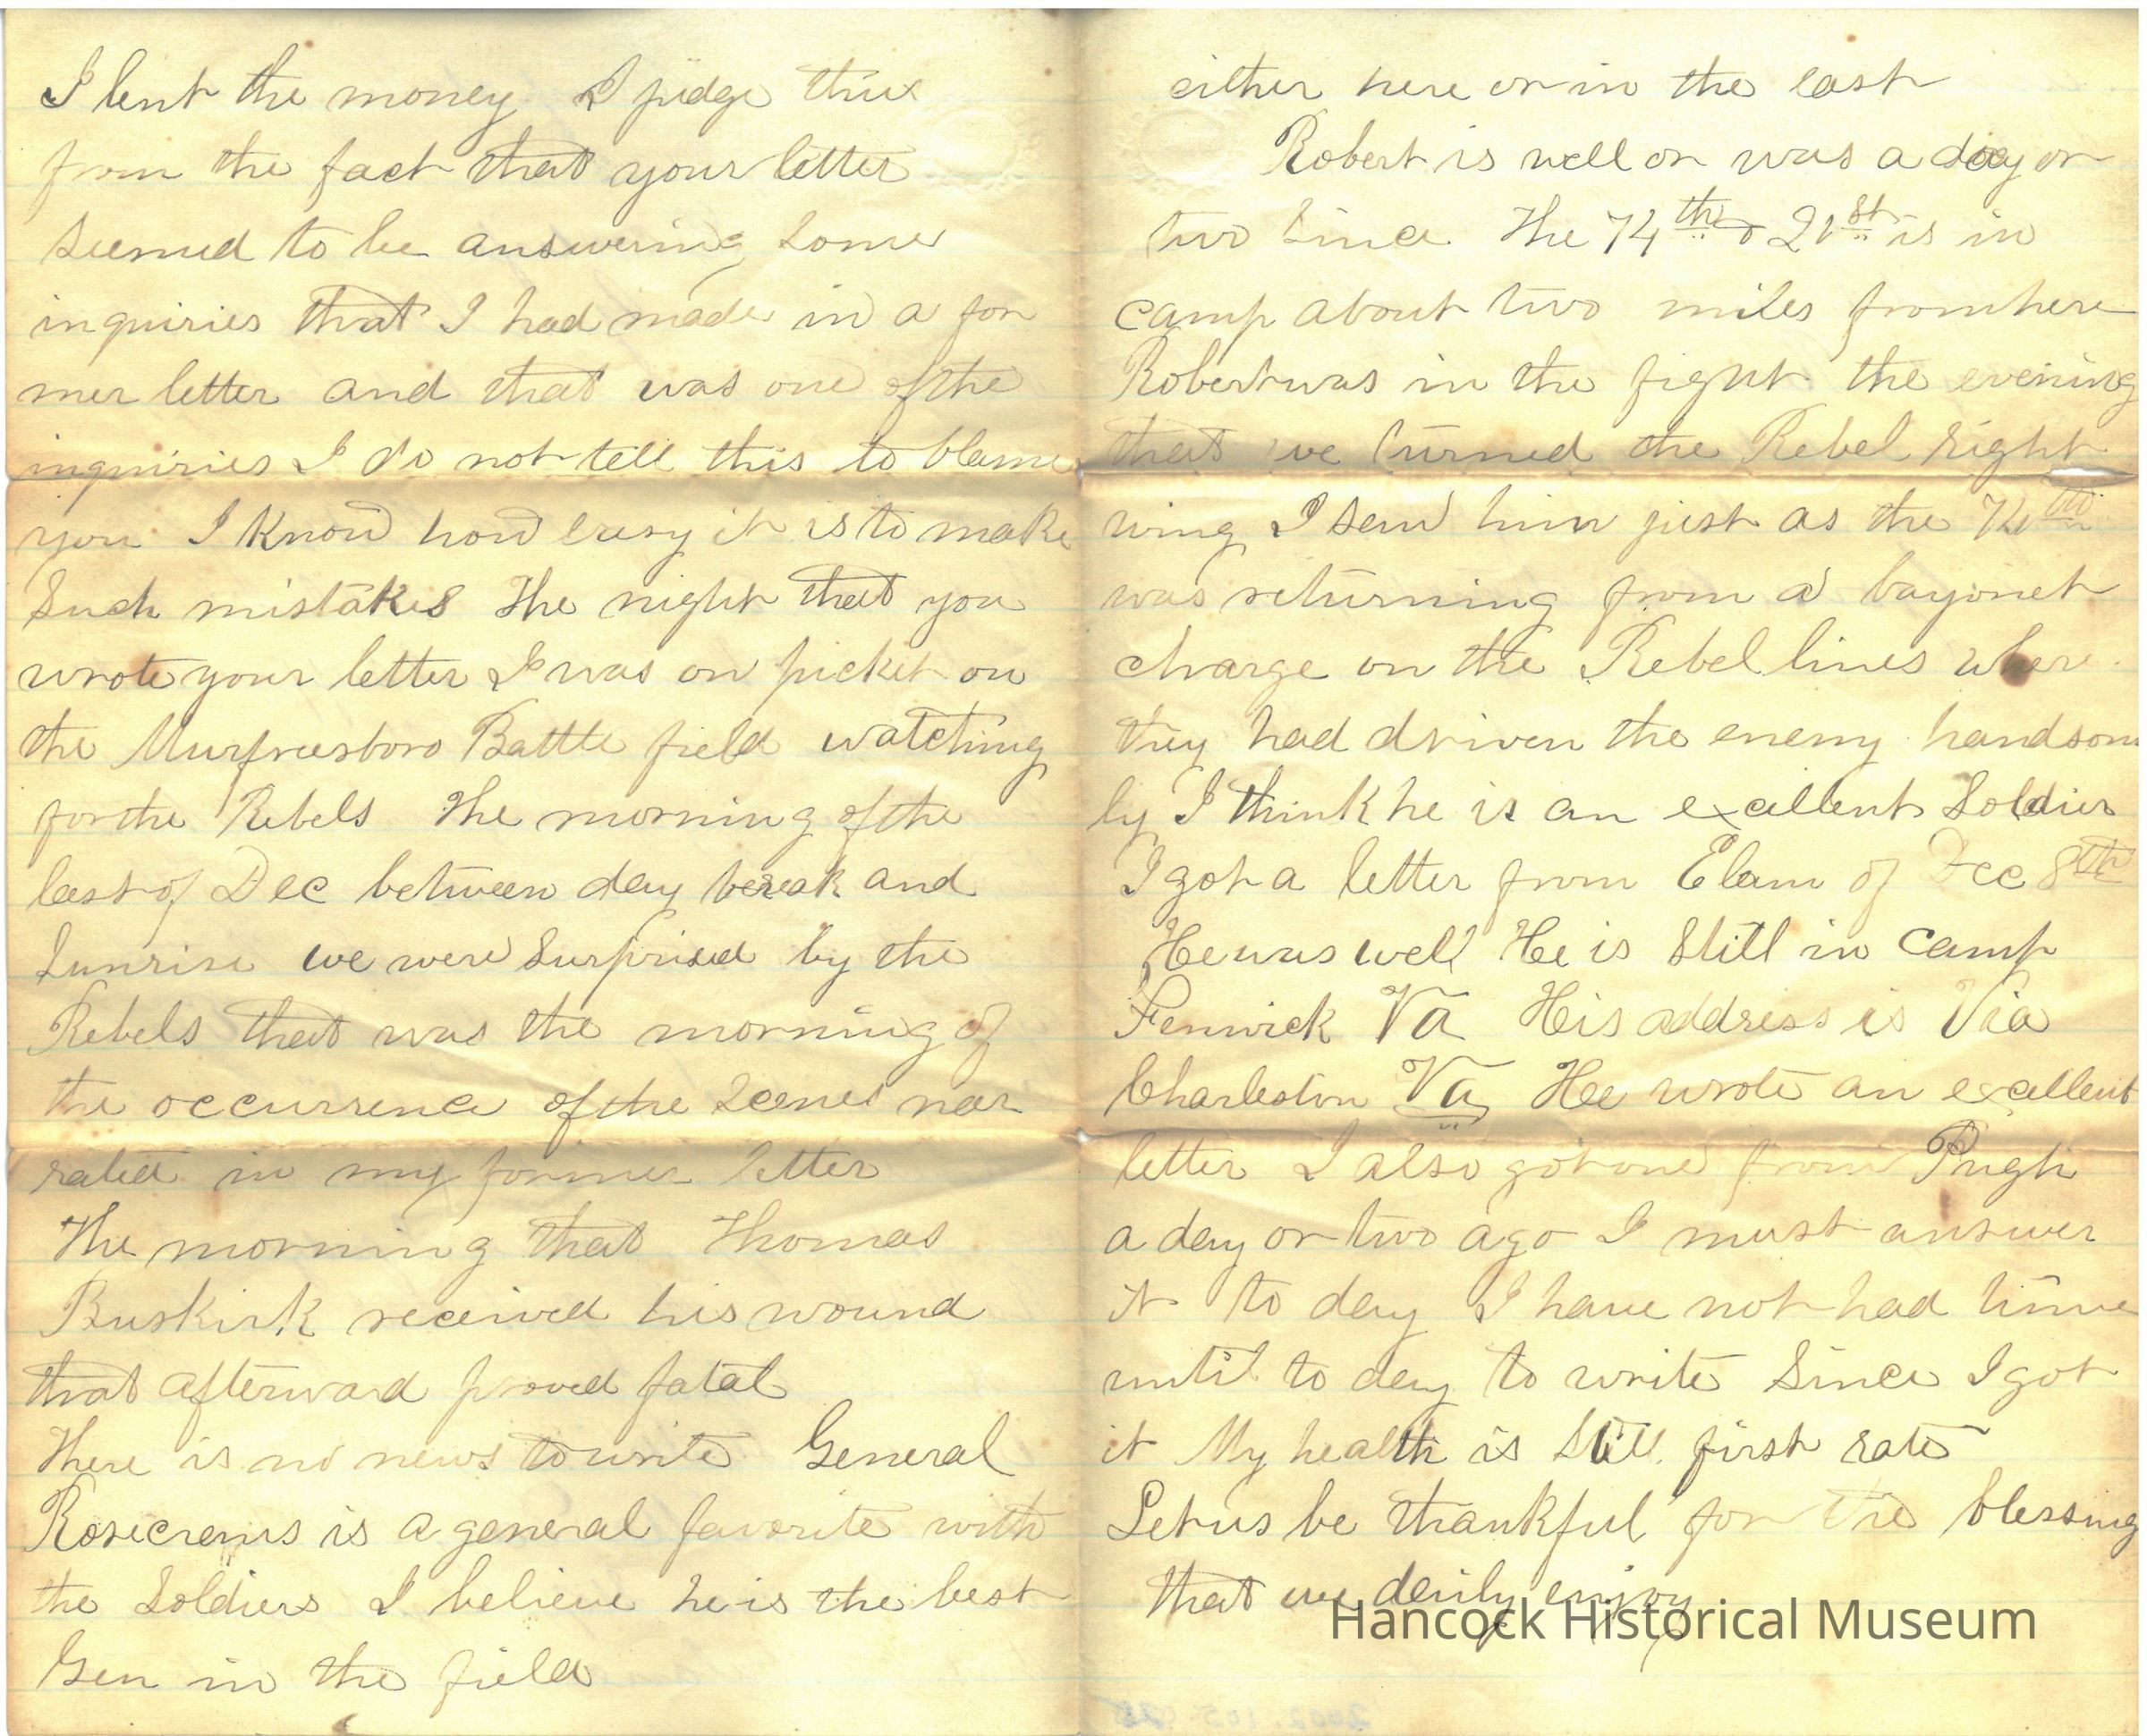 I lent the money I judge this
from the fact that your letter
seemed to be answering some
inquiries that I had made in a for
mer letter and that was one of the
inquiries I do not tell this to blame
you I know how easy it is to make
such mistakes The night that you
wrote your letter I was on picket on
the Murfreesboro Battle field watching
for the Rebels The morning of the
last of Dec between day break and
Sunrise we were Surprised by the
Rebels that was the morning of
the occurrence of the Scenes nar
rated in my former letter
The morning that Thomas
Buskirk received his wound
that afterward proved fatal
There is no news to write General
Rosecrans is a general favorite with
the Soldiers I believe he is the best
Gen in the field
either here or in the east
Robert is well or was a day or
two since The 74th & 21st is in
camp about two miles from here
Robert was in the fight the evening
that we turned the Rebel right
wing I saw him just as the 74th
was returning from a bayonet
charge on the Rebel lines where
they had driven the enemy handsom
ly I think he is an excellent Soldier
I got a letter from Elam of Dec 8th
He was well He is Still in Camp
Fenwick Va His address is Via
Charleston Va He wrote an excellent
letter I also got one from Pugh
a day or two ago I must answer
it to day I have not had time
until to day to write Since I got
it My health is Still first rate
Let us be thankful for the blessing
that we daily enjoy
Hancock Historical Museum